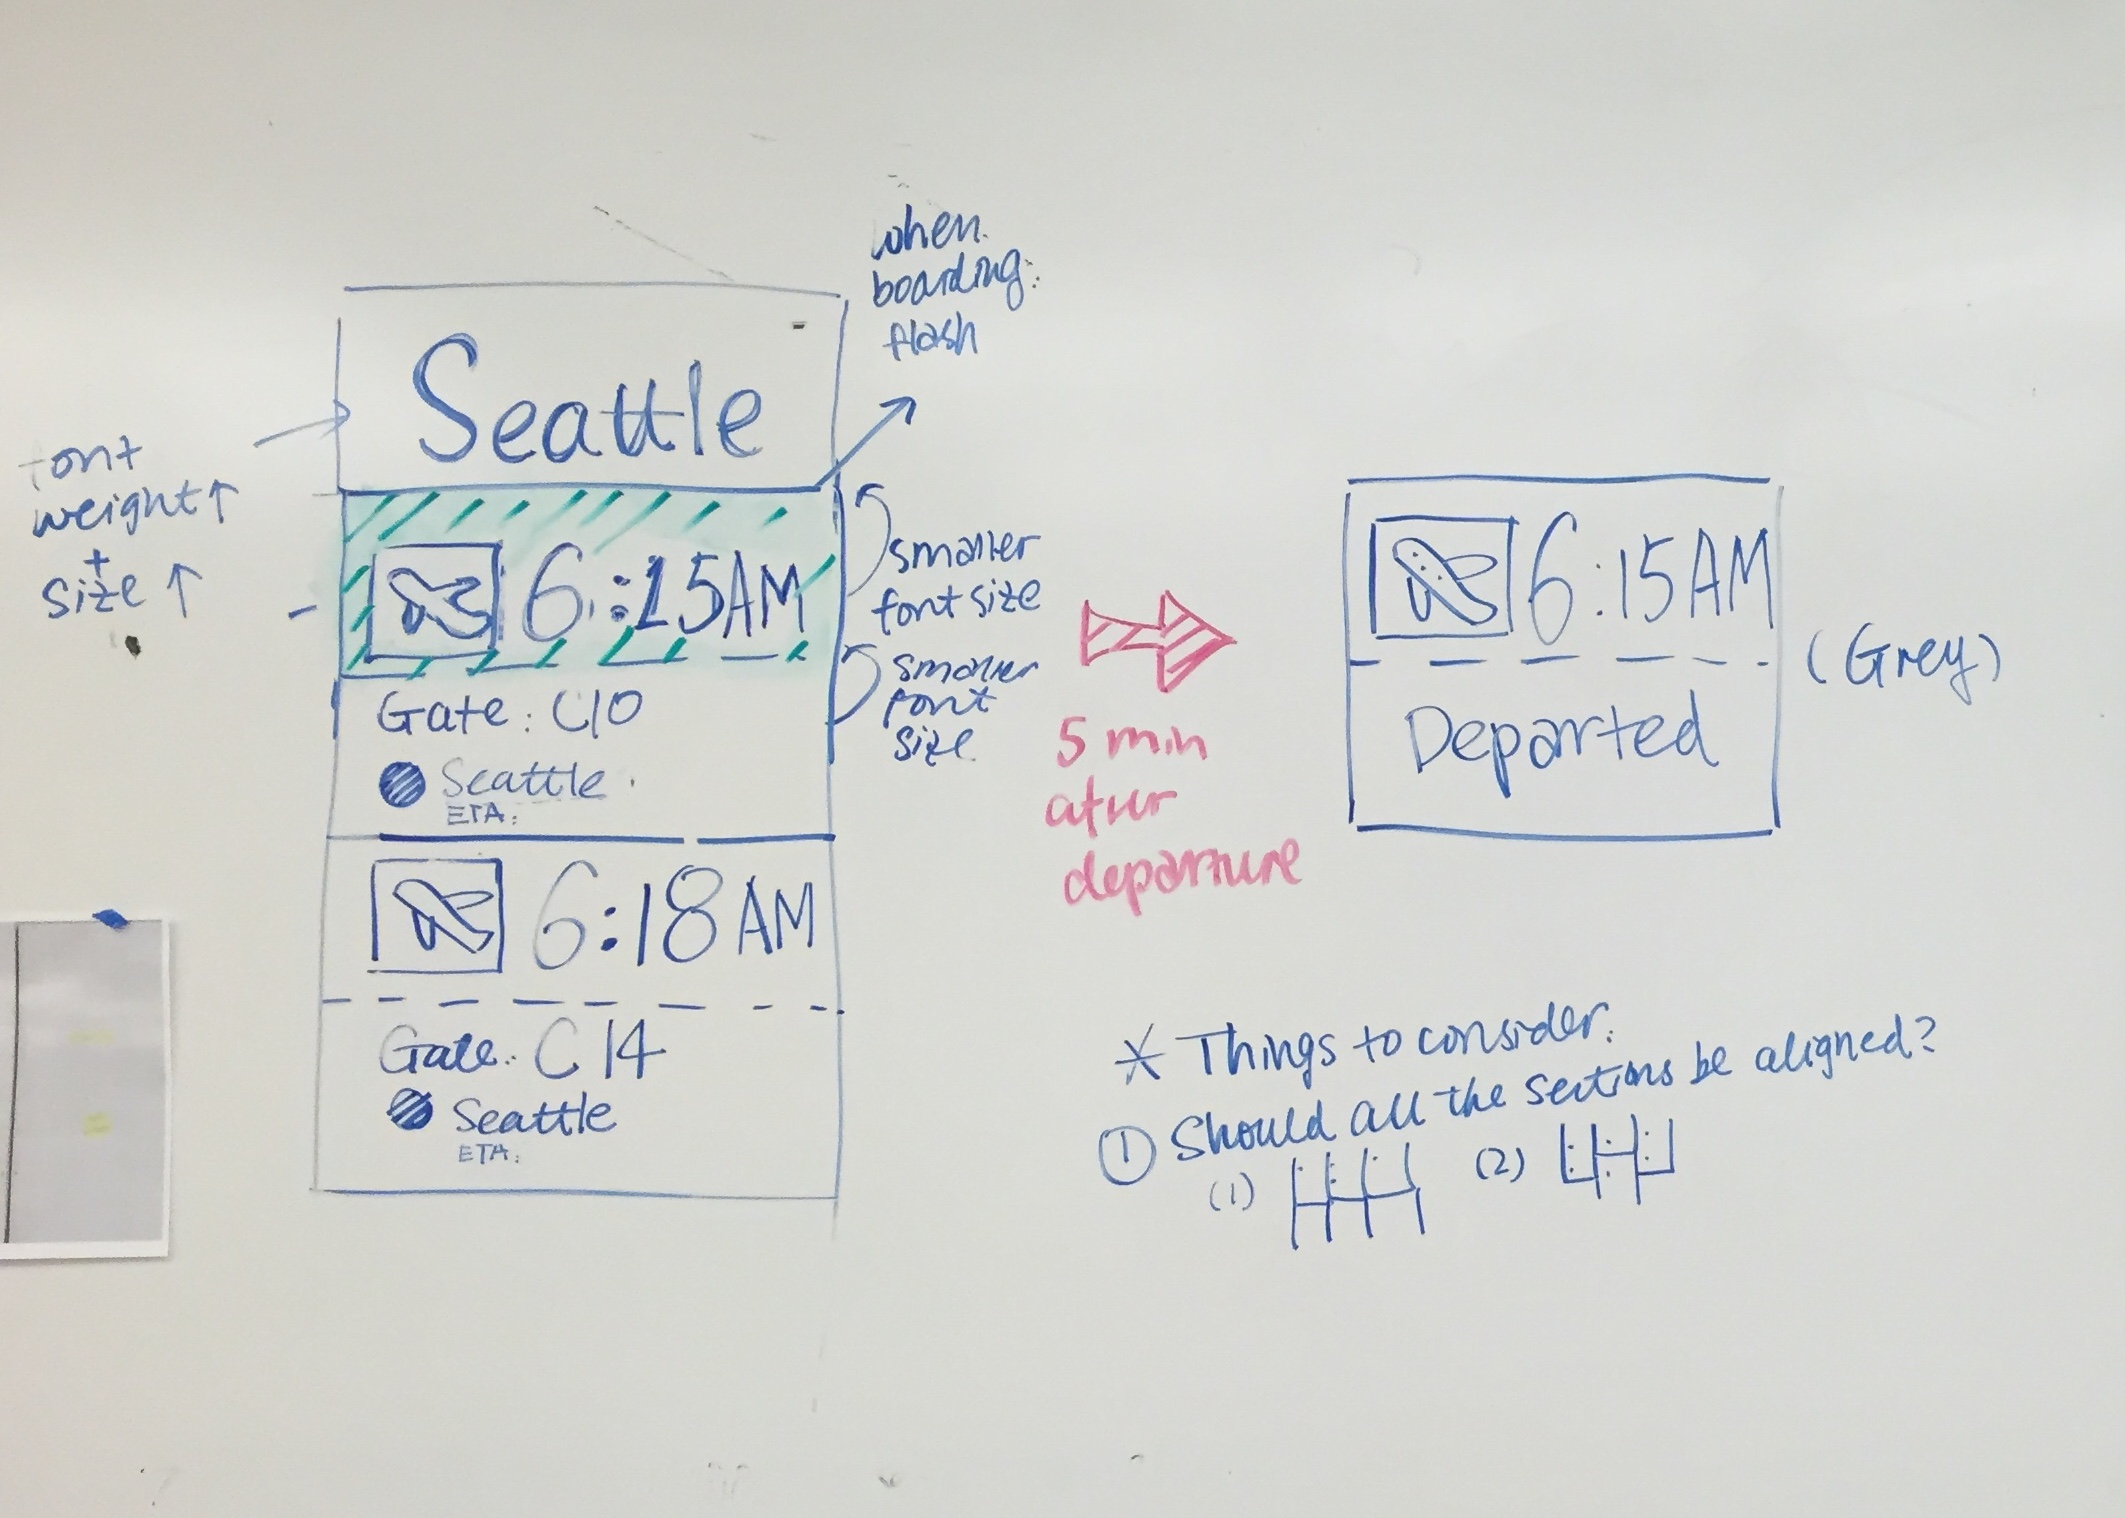 when
boarding:
flash
Seattle
font
weight↑
+
size ↑
6:15AM
smaller
font size
smaller
font
size
Gate: C10
Seattle
ETA:
6:18 AM
Gate: C14
Seattle
ETA:
5 min
after
departure
6:15AM
(Grey)
Departed
* Things to consider:
① Should all the sections be aligned?
(1) (2)